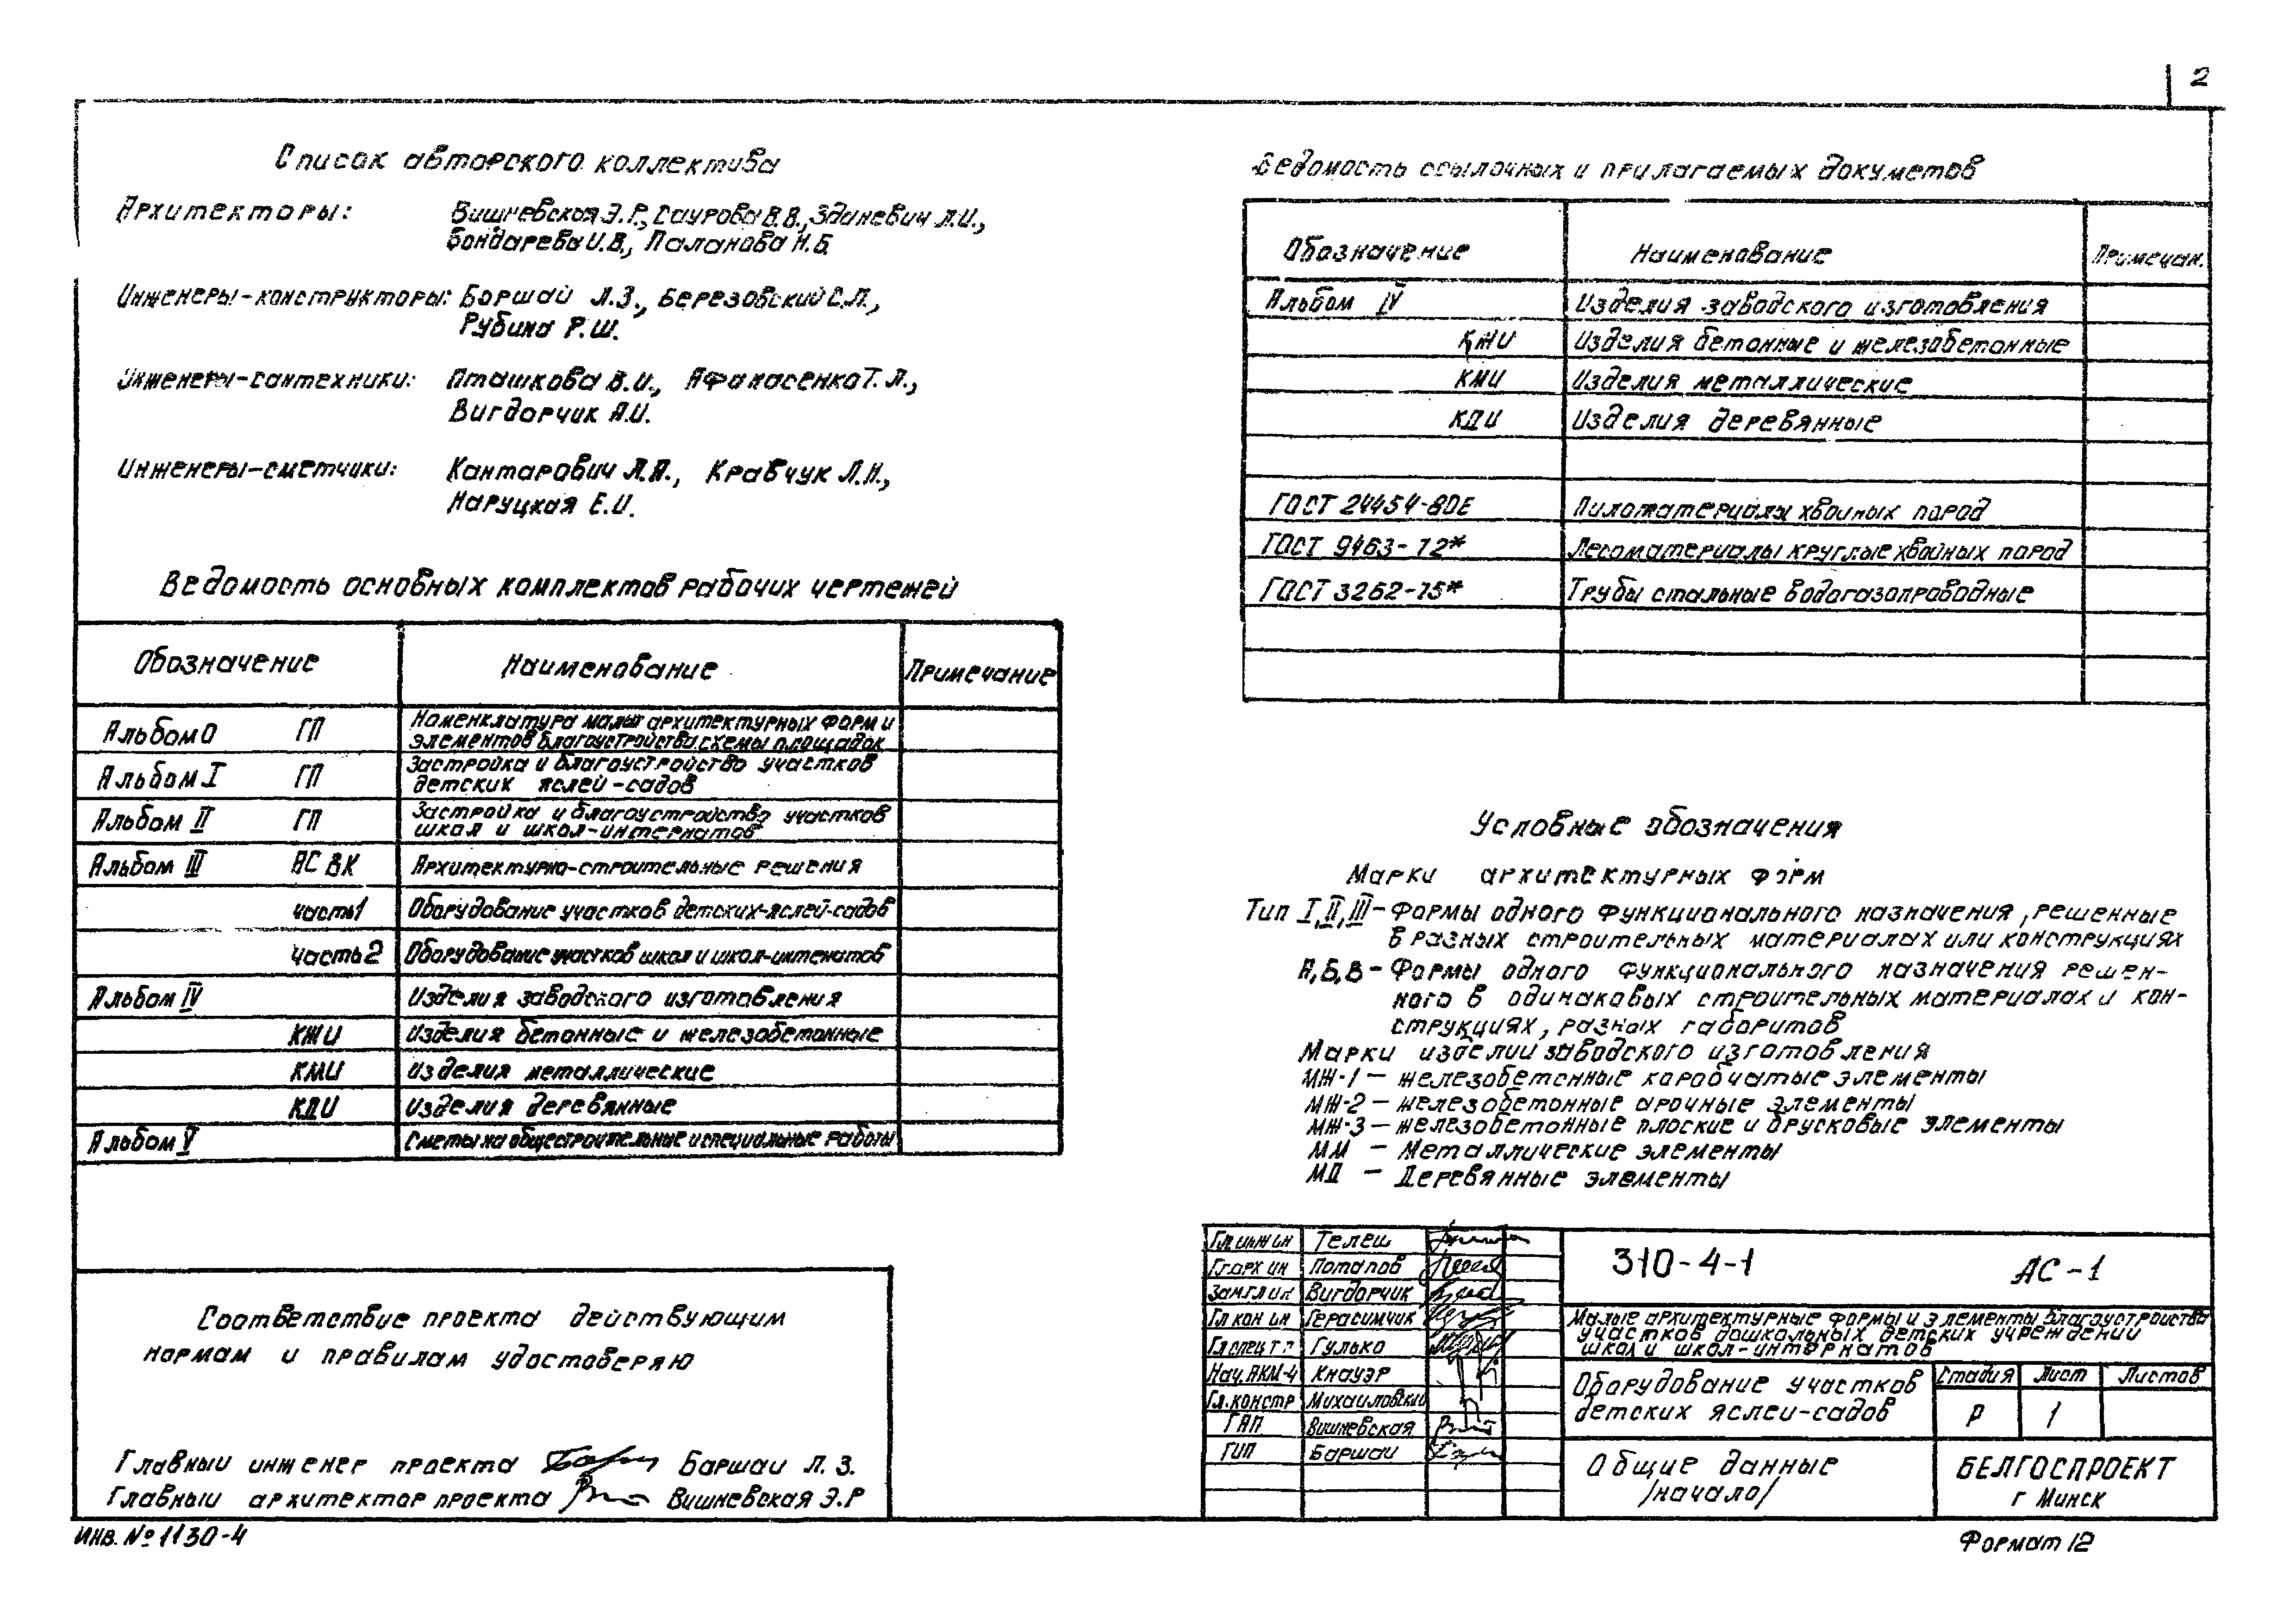 2
Список авторского коллектива
Архитекторы: Вишневская Э.Р., Саурова В.В., Зданевич Л.И.,
Бондарева И.В., Паланова Н.Б.
Инженеры-конструкторы: Боршай Л.З., Березовский С.Л.,
Рубина Р.Ш.
Инженеры-сантехники: Пташкова В.И., Афанасенко Т.Л.,
Вигдорчик А.И.
Инженеры-сметчики: Кантарович Л.А., Крабчук Л.Н.,
Наруцкая Е.И.
Ведомость основных комплектов рабочих чертежей
Обозначение Наименование Примечание
Альбом 0 ГП Номенклатура малых архитектурных форм и
элементов благоустройства, схемы площадок
Альбом I ГП Застройка и благоустройство участков
детских яслей-садов
Альбом II ГП Застройка и благоустройство участков
школ и школ-интернатов
Альбом III АС ВК Архитектурно-строительные решения
часть 1 Оборудование участков детских-яслей-садов
часть 2 Оборудование участков школ и школ-интенатов
Альбом IV Изделия заводского изготовления
КЖИ Изделия бетонные и железобетонные
КМИ Изделия металлические
КДИ Изделия деревянные
Альбом V Сметы на общестроительные и специальные работы
Соответствие проекта действующим
нормам и правилам удостоверяю
Главный инженер проекта Баршай Л. З.
Главный архитектор проекта Вишневская Э.Р
Инв. № 1130-4
Ведомость ссылочных и прилагаемых докуметов
Обозначение Наименование Примечан.
Альбом IV Изделия заводского изготовления
КЖИ Изделия бетонные и железобетонные
КМИ Изделия металлические
КДИ Изделия деревянные
ГОСТ 24454-80Е Пиломатериалы хвойных пород
ГОСТ 9463-72* Лесоматериалы круглые хвойных пород
ГОСТ 3262-75* Трубы стальные водогазопроводные
Условные обозначения
Марки архитектурных форм
Тип I, II, III - Формы одного функционального назначения, решенные
в разных строительных материалах или конструкциях
А, Б, В - Формы одного функционального назначения решен-
ного в одинаковых строительных материалах и кон-
струкциях, разных габаритов
Марки изделий заводского изготовления
МЖ-1 - железобетонные коробчатые элементы
МЖ-2 - железобетонные арочные элементы
МЖ-3 - железобетонные плоские и брусковые элементы
ММ - Металлические элементы
МД - Деревянные элементы
Гл инж ин Телеш
Гл арх ин Потапов
Зам гл ин Вигдорчик
Гл кон ин Герасимчик
Гл спец т.о Гулько
Нач. АКМ-4 Кнауэр
Гл. констр Михайловский
ГАП Вишневская
ГИП Баршай
310-4-1 АС-1
Малые архитектурные формы и элементы благоустройства
участков дошкольных детских учреждений
школ и школ-интернатов
Оборудование участков
детских яслей-садов
Стадия Лист Листов
Р 1
Общие данные
/начало/
БЕЛГОСПРОЕКТ
г Минск
Формат 12